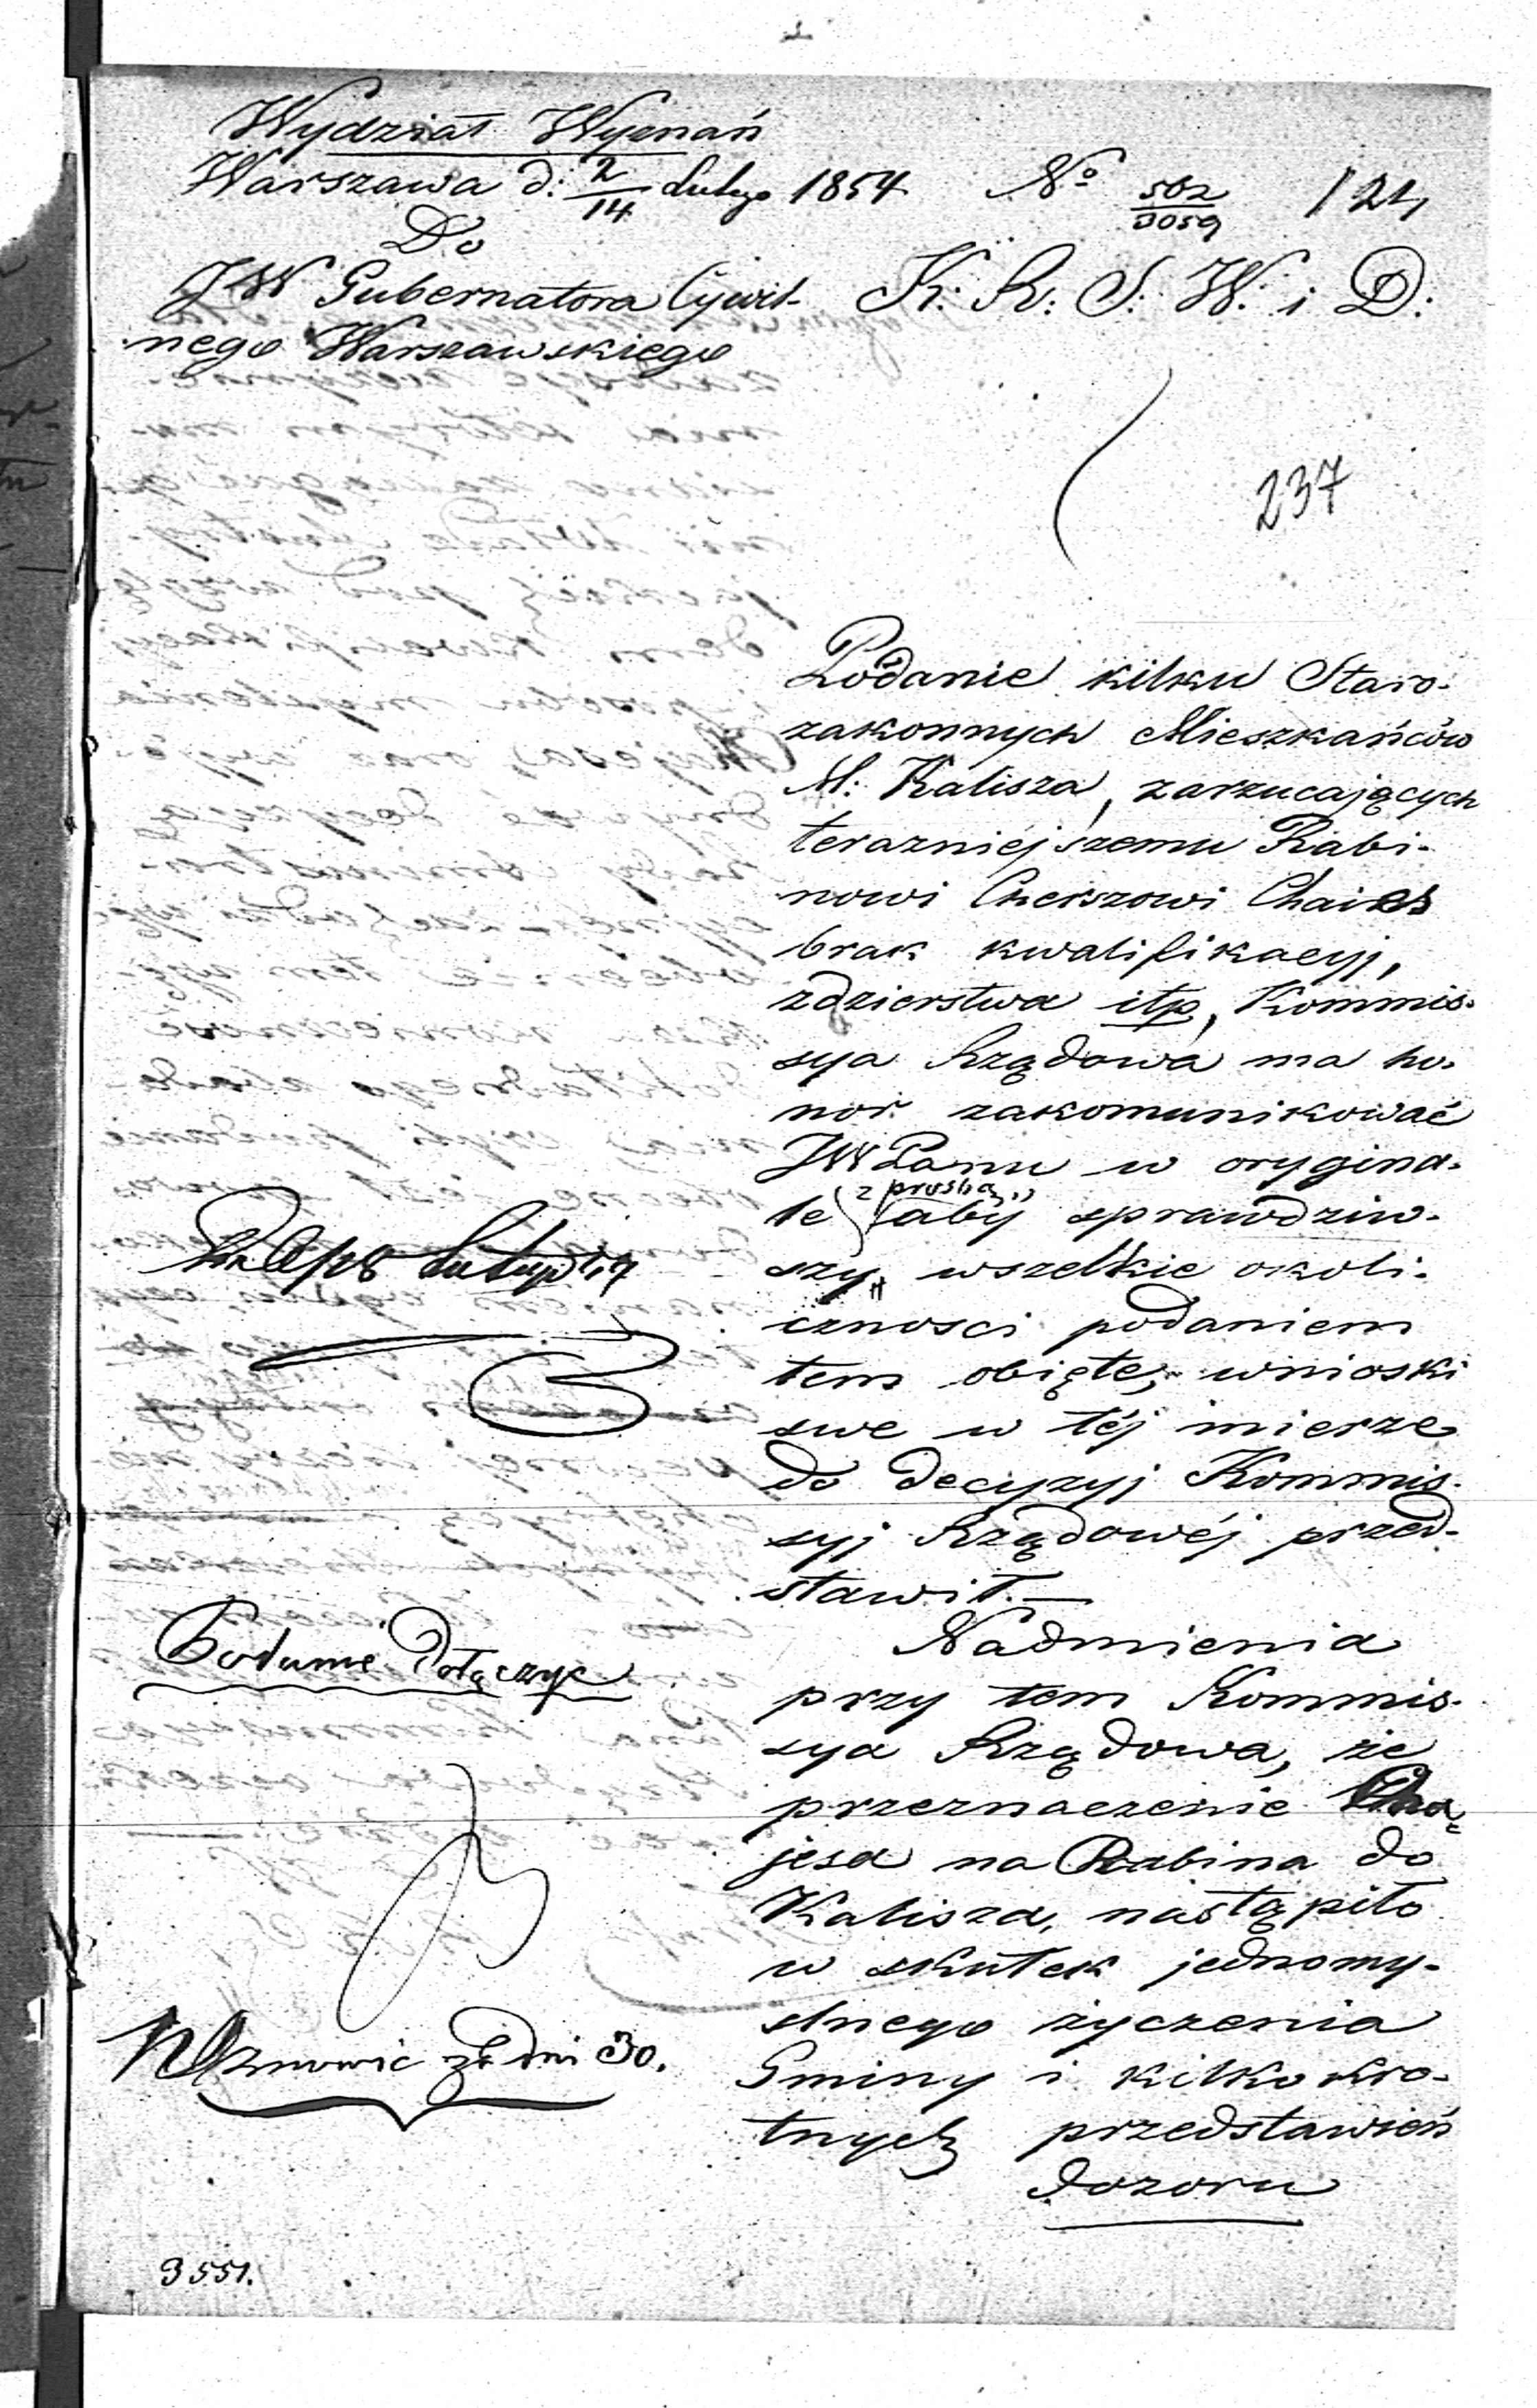 Wydział Wyznań
Warszawa d: 2/14 Lutego 1854 No 502/3059 124
Do
JW Gubernatora Cywil-
nego Warszawskiego
K: R: S: W: i D:
237
Podanie kilku Staro-
zakonnych Mieszkańców
M: Kalisza, zarzucających
terazniejszemu Rabi-
nowi Cherszowi Chaies
brak kwalifikacyj,
zdzierstwa itp, Kommis-
sya Rządowa ma ho-
nor zakomunikować
JWPanu w orygina-
z prosbą,
le aby sprawdziw-
szy wszelkie okoli-
cznosci podaniem
tem obięte, wnioski
swe w téj mierze
do decyzyj Kommis-
syj Rządowéj przed-
stawił.—
Nadmienia
przy tem Kommis-
sya Rządowa, że
przeznaczenie Cha-
jesa na Rabina do
Kalisza, nastąpiło
w skutek jednomy-
slnego życzenia
Gminy i kilkokro-
tnych przedstawień
dozoru
Podanie Dołączyc
Wznowic za dni 30.
9551.